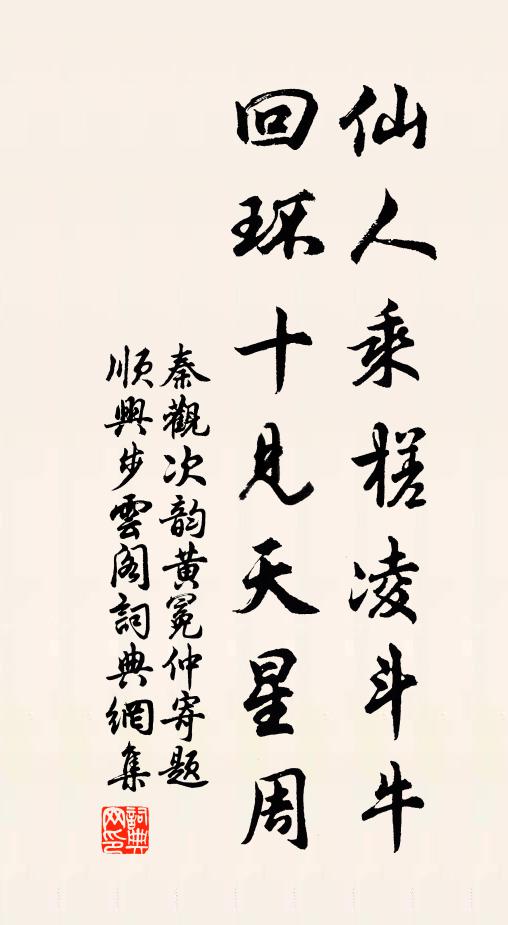 仙人乘槎凌斗牛
回环十见天星周
秦觀次韵黄冕仲寄题
順興步雲阁詞典網集
詞典
网印